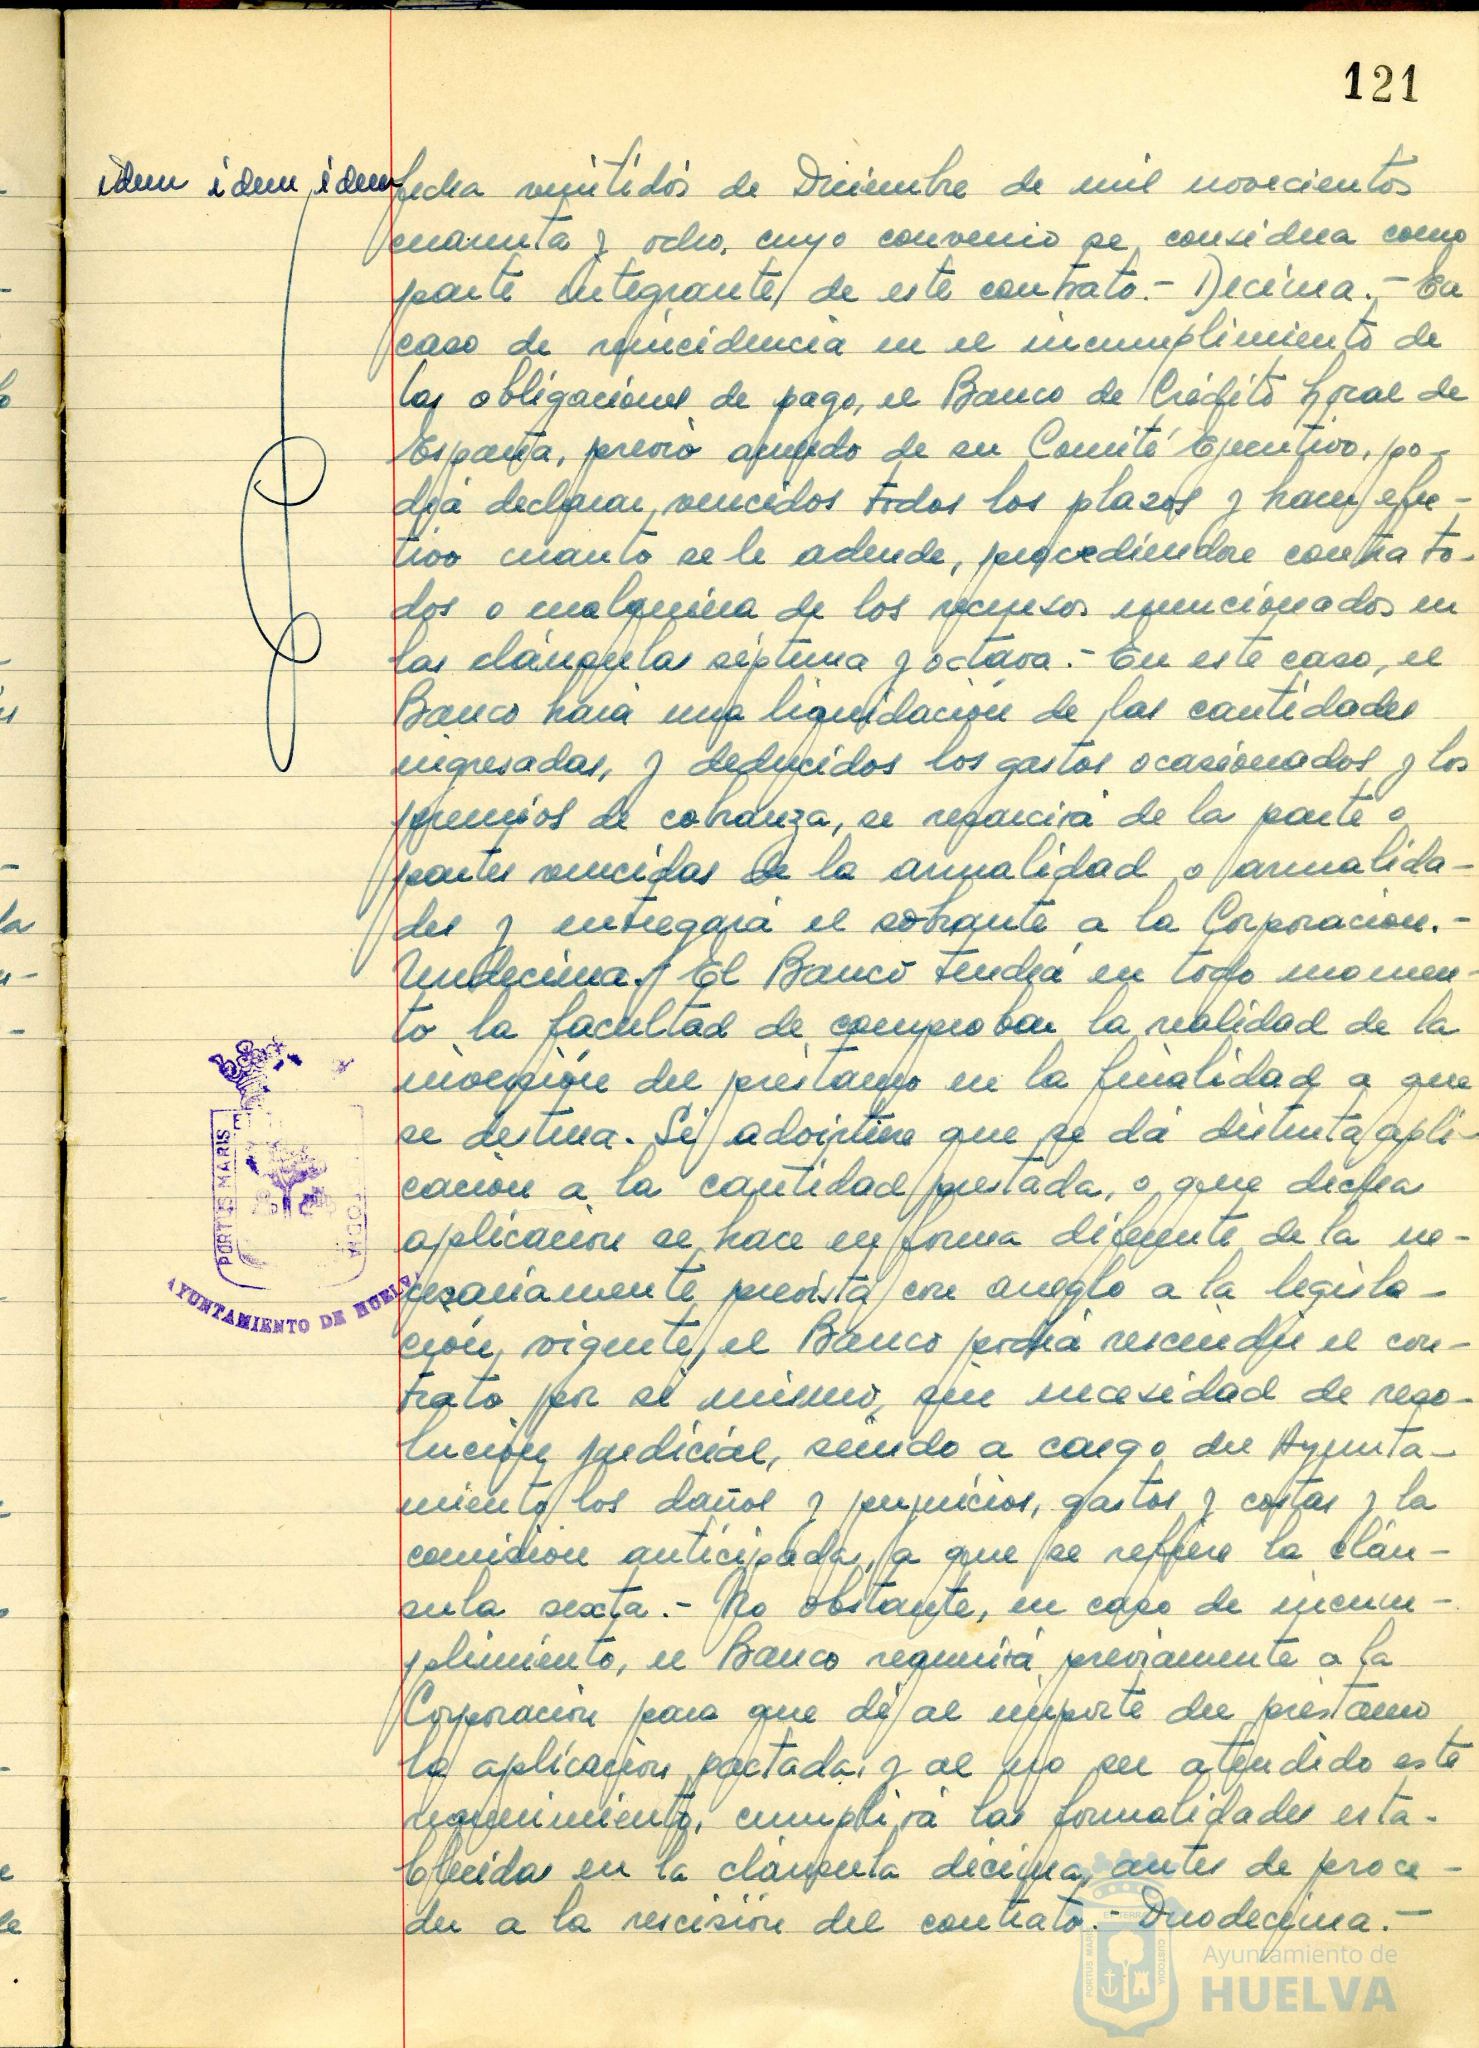 121
idem idem idem
fecha veintidós de Diciembre de mil novecientos
cuarenta y ocho, cuyo convenio se considera como
parte integrante de este contrato.- Décima.- En
caso de reincidencia en el incumplimiento de
las obligaciones de pago, el Banco de Crédito Local de
España, previo acuerdo de su Comité Ejecutivo, po-
drá declarar vencidos todos los plazos y hacer efec-
tivo cuanto se le adeude, procediendose contra to-
dos o cualquiera de los recursos mencionados en
las cláusulas séptima y octava.- En este caso, el
Banco hará una liquidación de las cantidades
ingresadas, y deducidos los gastos ocasionados y los
premios de cobranza, se resarcirá de la parte o
partes vencidas de la anualidad o anualida-
des y entregará el sobrante a la Corporación.-
Undecima.- El Banco tendrá en todo momen-
to la facultad de comprobar la realidad de la
inversión del préstamo en la finalidad a que
se destina. Si advirtiere que se dá distinta apli-
cación a la cantidad prestada, o que dicha
aplicación se hace en forma diferente de la ne-
cesariamente prevista con arreglo a la legisla-
ción vigente, el Banco podrá rescindir el con-
trato por si mismo, sin necesidad de reso-
lución judicial, siendo a cargo del Ayunta-
miento los daños y perjuicios, gastos y costas y la
comisión anticipada, a que se refiere la cláu-
sula sexta.- No obstante, en caso de incum-
plimiento, el Banco requerirá previamente a la
Corporación para que dé al importe del préstamo
la aplicación pactada, y al no ser atendido este
requerimiento, cumplirá las formalidades esta-
blecidas en la cláusula décima, antes de proce-
der a la rescisión del contrato.- Duodecima.-
PORTUS MARIS
TODIA
AYUNTAMIENTO DE HUELVA
PORTUS MARIS
CUSTODIA
Ayuntamiento de
HUELVA